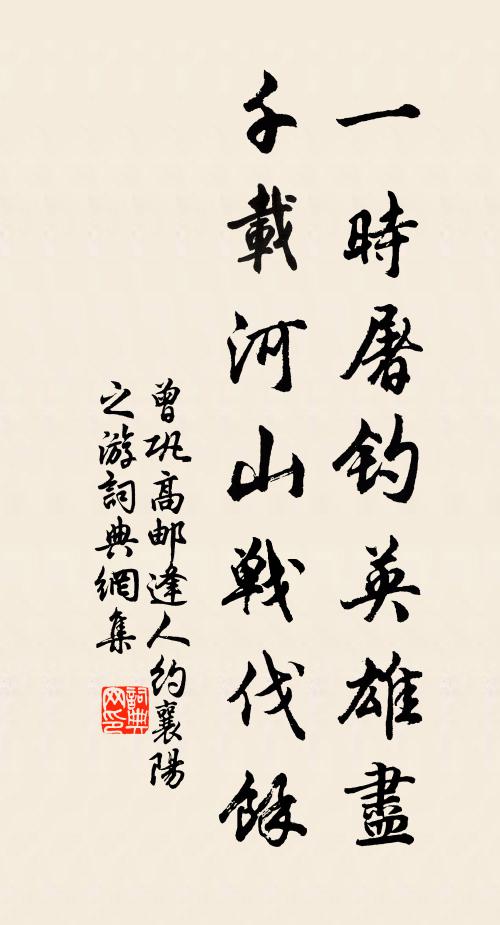 一時屠釣英雄盡
千載河山戰伐餘
曾鞏高邮逢人約襄陽
之游詞典網集
詞典網印